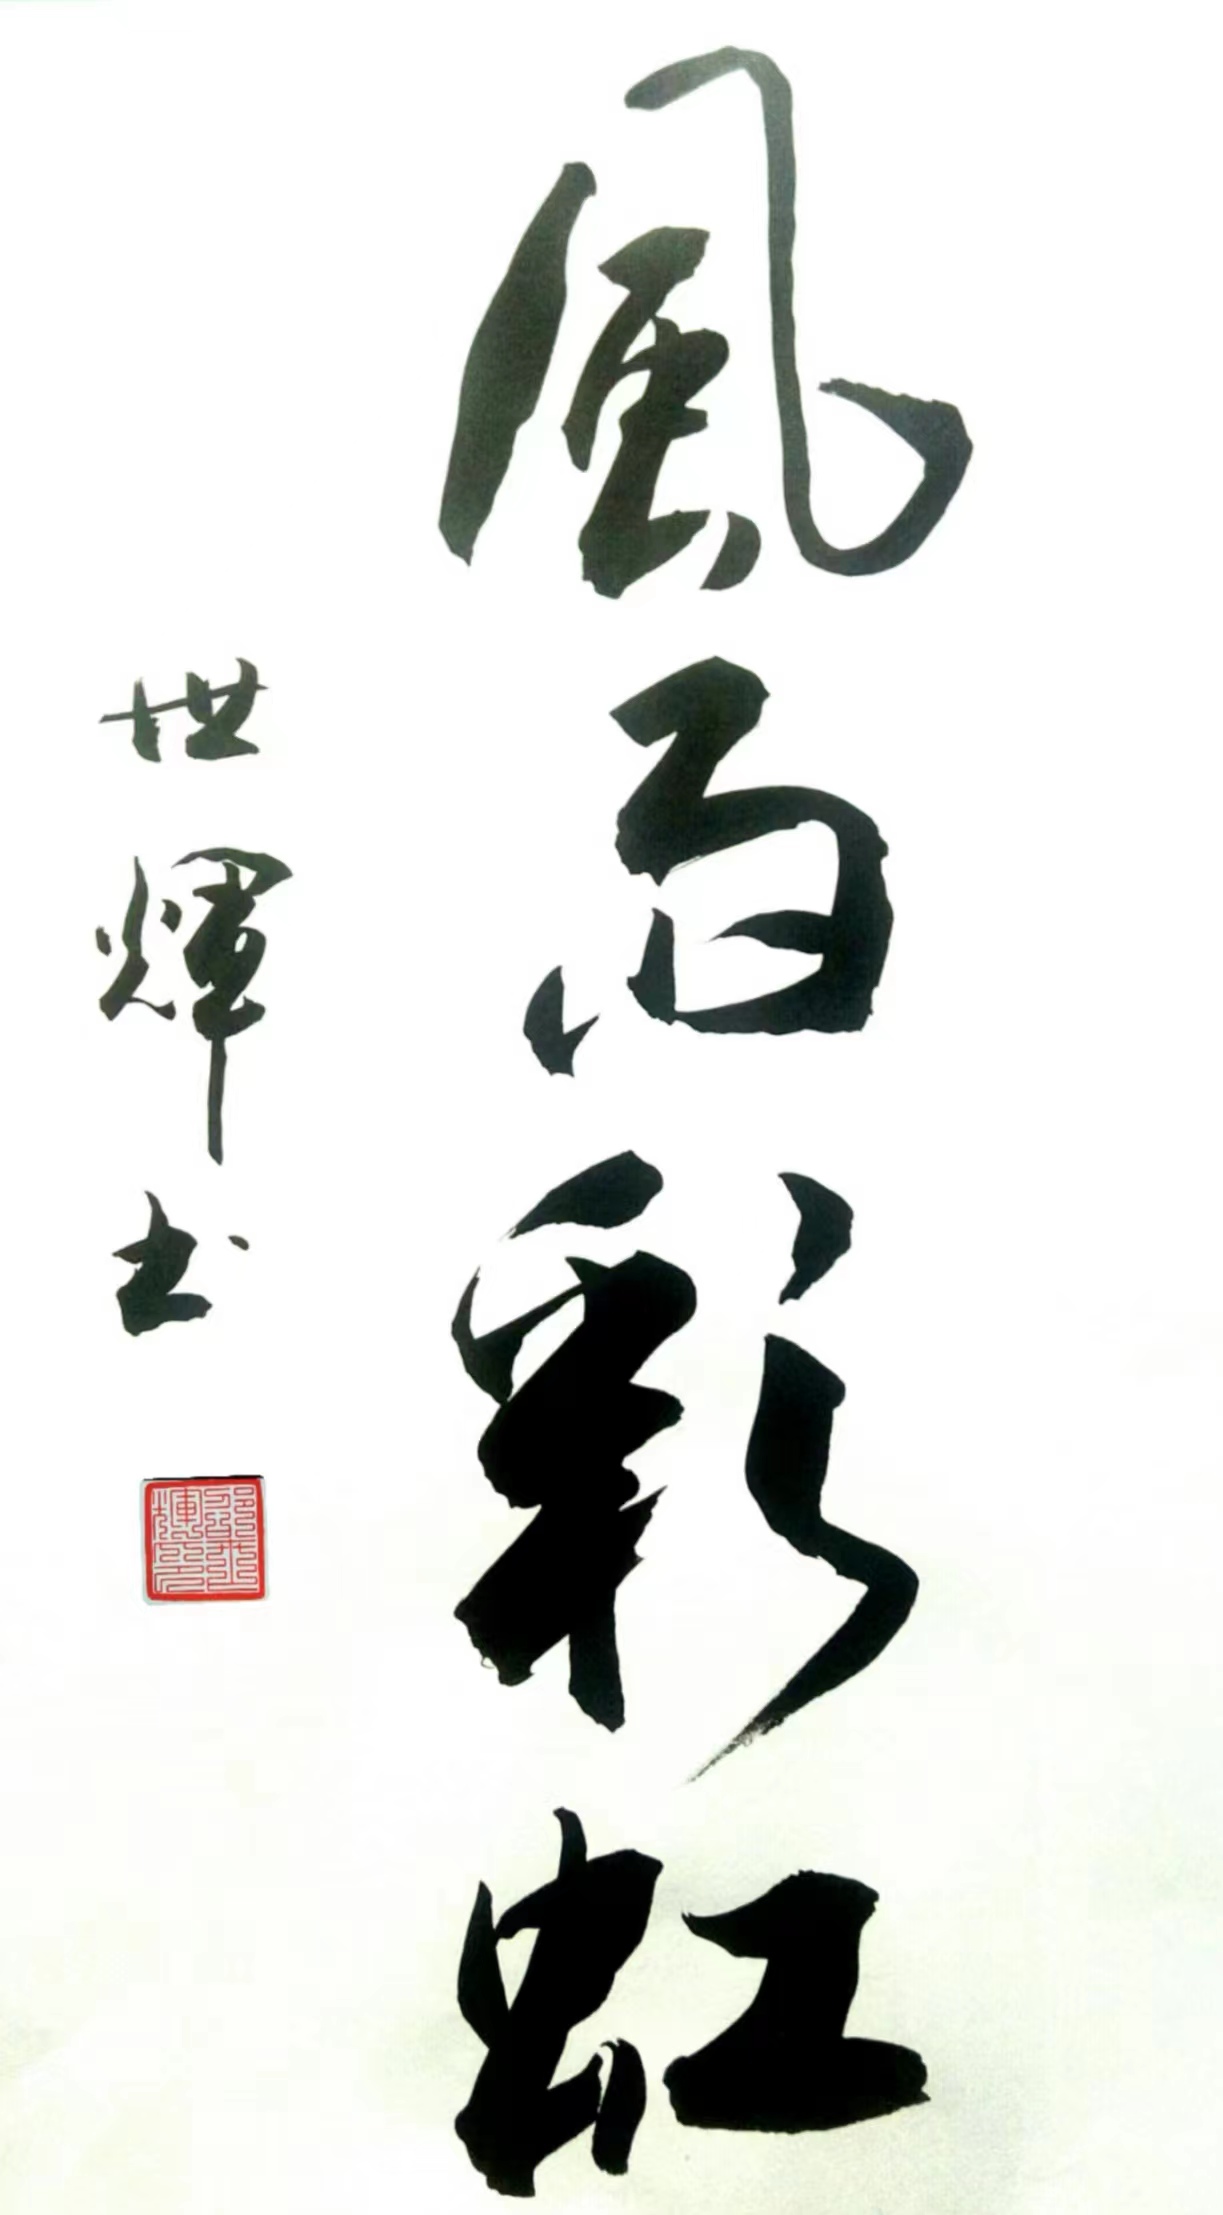 風雨彩虹
世輝书